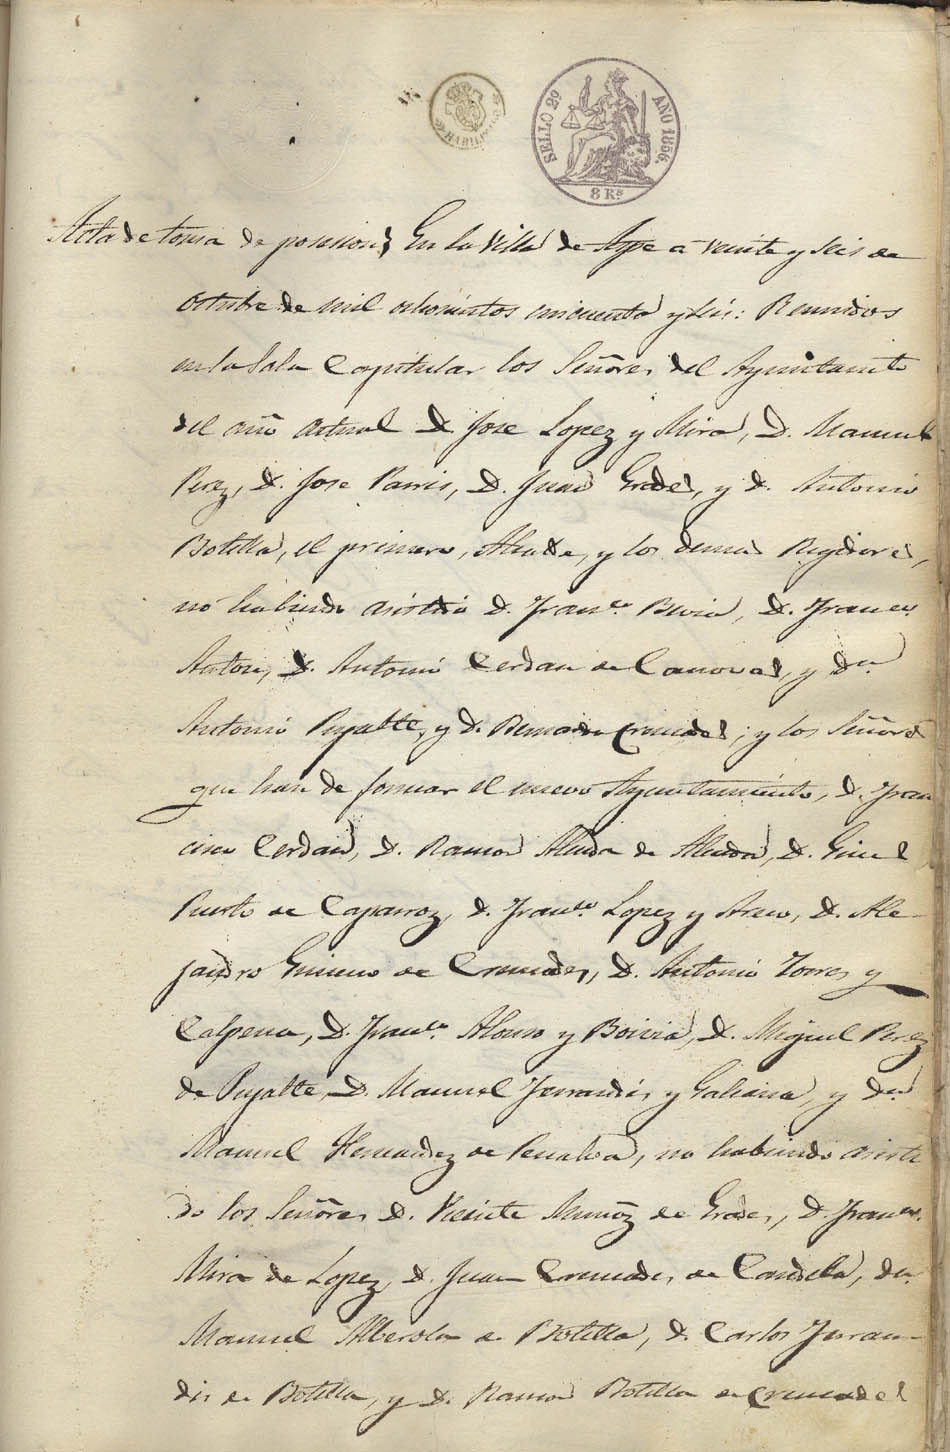 HABILITADO
SELLO 2º AÑO 1856.
8 Rs
Acta de toma de posesion, En la Villa de Aspe a veinte y seis de
Octubre de mil ochocientos cincuenta y seis: Reunidos
en la Sala Capitular los Señores del Ayuntamto
del año actual D. Jose Lopez y Mira, D. Manuel
Perez, D. Jose Parris, D. Juan Grades, y D. Antonio
Botella, el primero, Alcalde, y los demas Regidores,
no habiendo asistido D. Franco , D. Franco
Anton, D. Antonio Cerdan de Canovas, y Dn
Antonio Pujalte, y D. Bernardo Cremades; y los Señores
que han de formar el nuevo Ayuntamiento, D. Fran
cisco Cerdan, D. Ramon Alcolea de Alcolea, D. Gines
Puerto de Caparroz, D. Franco Lopez y , D. Ale-
jandro Gimeno de Cremades, D. Antonio Torres y
Calpena, D. Franco Alonso y , D. Miguel Perez
de Pujalte, D. Manuel Ferrandis y Galiana, y Dn
Manuel Hernandez de Penalva, no habiendo asisti
do los Señores D. Vicente Muñoz de Grades, D. Franco
Mira de Lopez, D. Juan Cremades de Candela, Dn
Manuel Alberola de Botella, D. Carlos Ferran-
dis de Botella, y D. Ramon Botella de Cremades